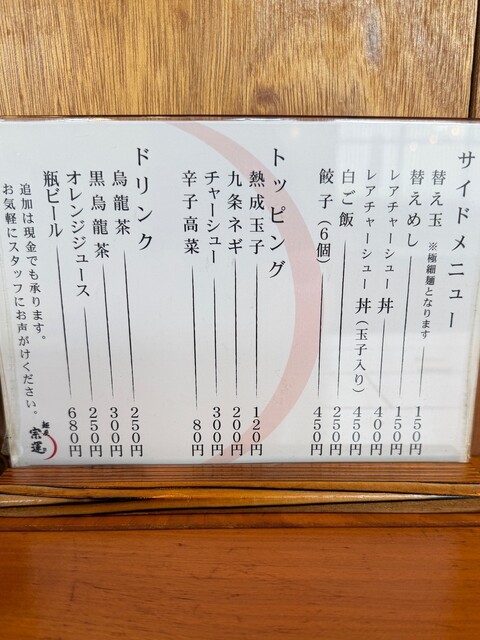 サイドメニュー
替え玉 ※極細麺となります 150円
替えめし 150円
レアチャーシュー丼 400円
レアチャーシュー丼(玉子入り) 450円
白ご飯 250円
餃子(6個) 450円
トッピング
熟成玉子 120円
九条ネギ 200円
チャーシュー 300円
辛子高菜 80円
ドリンク
烏龍茶 250円
黒烏龍茶 300円
オレンジジュース 250円
瓶ビール 680円
追加は現金でも承ります。
お気軽にスタッフにお声がけください。
麺屋
宗蓮